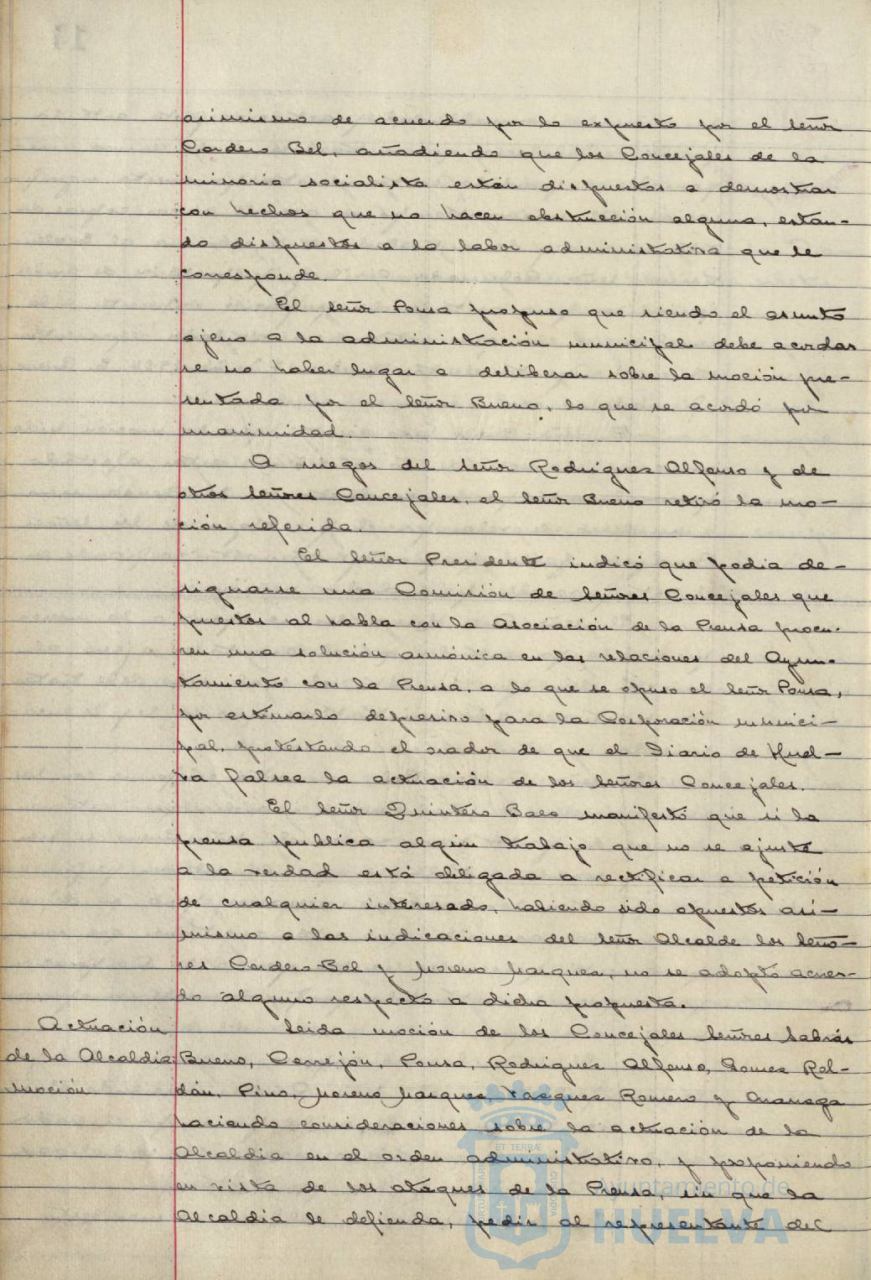 asimismo de acuerdo por lo expuesto por el señor
Cordero Bel, añadiendo que los Concejales de la
minoria socialista están dispuestos a demostrar
con hechos que no hacen obstrucción alguna, estan-
do dispuestos a la labor administrativa que le
corresponde.
El señor Ponsa propuso que siendo el asunto
ajeno a la administración municipal debe acordar
se no haber lugar a deliberar sobre la moción pre-
sentada por el señor Bueno, lo que se acordó por
unanimidad.
A ruegos del señor Rodriguez Alfonso y de
otros señores Concejales, el señor Bueno retiró la mo-
ción referida.
El señor Presidente indicó que podia de-
signarse una Comisión de señores Concejales que
puestos al habla con la Asociación de la Prensa procu-
ren una solución armónica en las relaciones del Ayun-
tamiento con la Prensa, a lo que se opuso el señor Ponsa,
por estimarlo depresivo para la Corporación munici-
pal, protestando el orador de que el Diario de Huel-
va falsea la actuación de los señores Concejales.
El señor Quintero Baez manifestó que si la
prensa publica algún trabajo que no se ajuste
a la verdad está obligada a rectificar a petición
de cualquier interesado, habiendo sido opuestos asi-
mismo a las indicaciones del señor Alcalde los seño-
res Cordero Bel y Moreno Marquez, no se adoptó acuer-
do alguno respecto a dicha propuesta.
Actuación
de la Alcaldia
moción
Leida moción de los Concejales señores Sabrás
Bueno, Cerrejón, Ponsa, Rodriguez Alfonso, Gomez Rol-
dán, Pino, Moreno Marquez, Vazquez Romero y
haciendo consideraciones sobre la actuación de la
Alcaldia en el orden administrativo, y proponiendo
en vista de los ataques de la Prensa, sin que la
Alcaldia le defienda, pedir al representante del
Ayuntamiento de
HUELVA